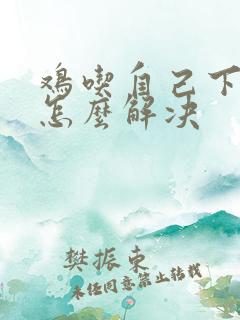 鸡吃自己下
怎麼解决
樊振東
未经同意禁止转载